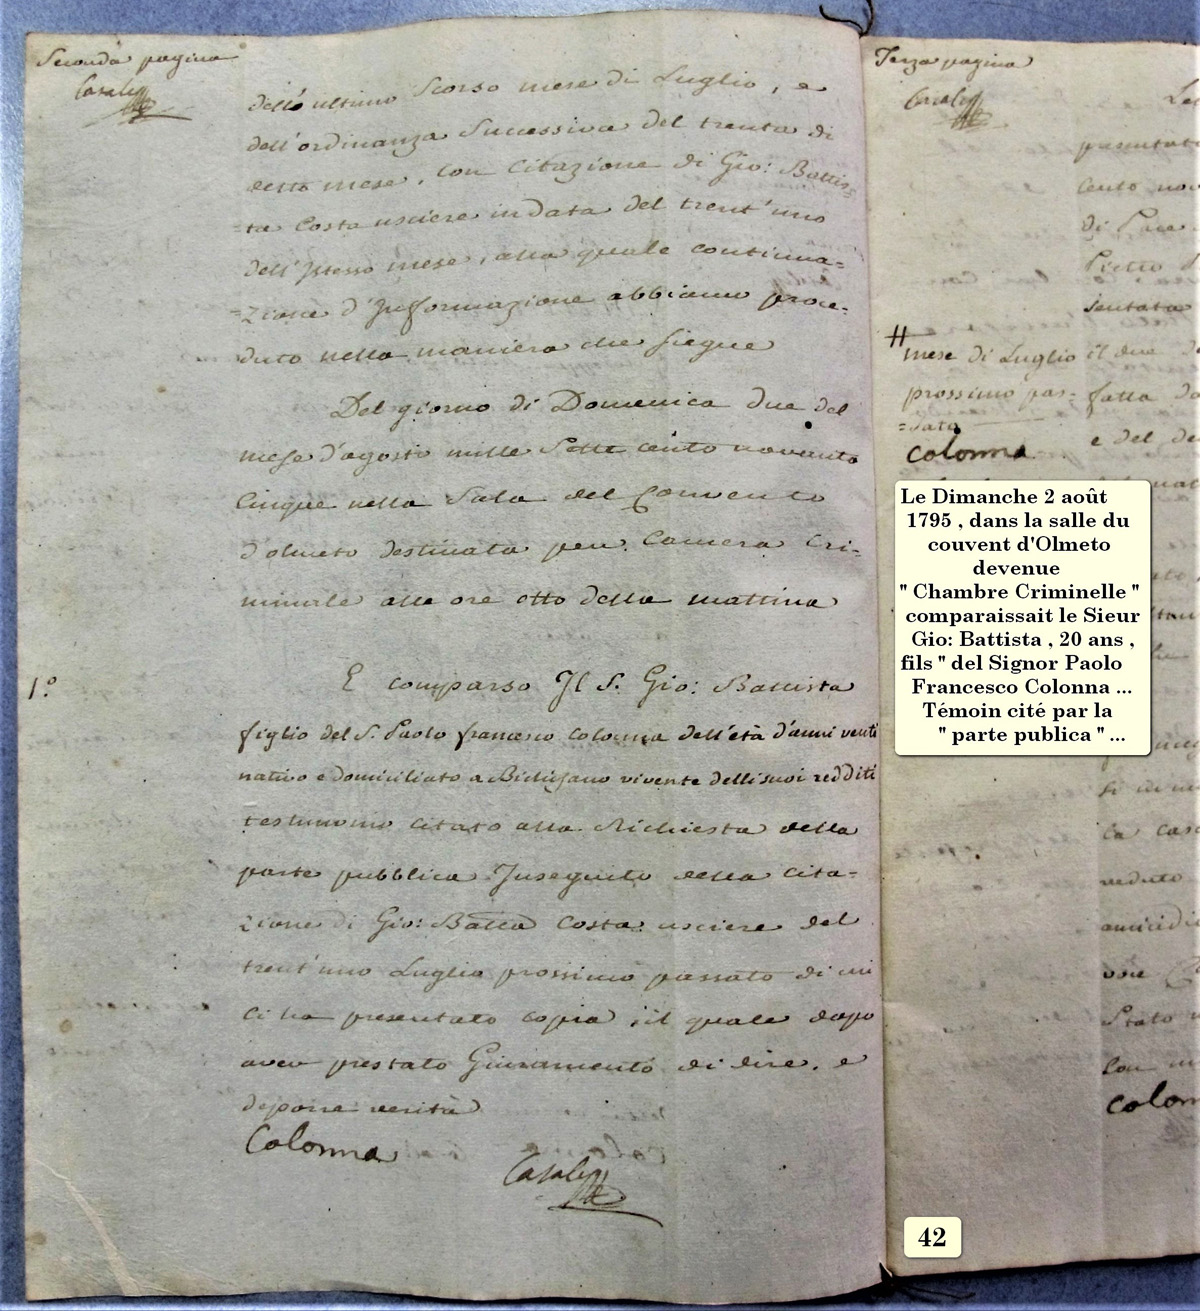 Seconda pagina
Casale
dell'ultimo scorso mese di Luglio, e
dell'ordinanza successiva del trenta di
detto mese, con citazione di Gio: Battis=
=ta Costa usciere in data del trent'uno
dell'istesso mese, alla quale continua=
=zione d'Informazione abbiamo proce=
duto nella maniera che siegue
Del giorno di Domenica due del
mese d'agosto mille sette cento novanta
cinque nella Sala del Convento
d'olmeto destinata per Camera Cri=
minale alle ore otto della mattina
1.o
E comparso Il S. Gio: Battista
figlio del S. Paolo francesco Colonna dell'età d'anni venti
nativo e domiciliato a Bichisano vivente delli suoi redditi
testimonio citato alla Richiesta della
parte pubblica Inseguito della cita=
zione di Gio: Batta Costa usciere del
trent'uno Luglio prossimo passato di cui
ci ha presentato copia, il quale dopo
aver prestato Giuramento di dire, e
deporre verità
Colonna
Casale
Terza pagina
Casale
di Pace
Pietro
sentata
#
mese di Luglio
prossimo pas=
=sato
colonna
il due
fatta
e del
Le Dimanche 2 août
1795 , dans la salle du
couvent d'Olmeto
devenue
" Chambre Criminelle "
comparaissait le Sieur
Gio: Battista , 20 ans ,
fils " del Signor Paolo
Francesco Colonna ...
Témoin cité par la
" parte publica " ...
veduto
Stato
colon
42